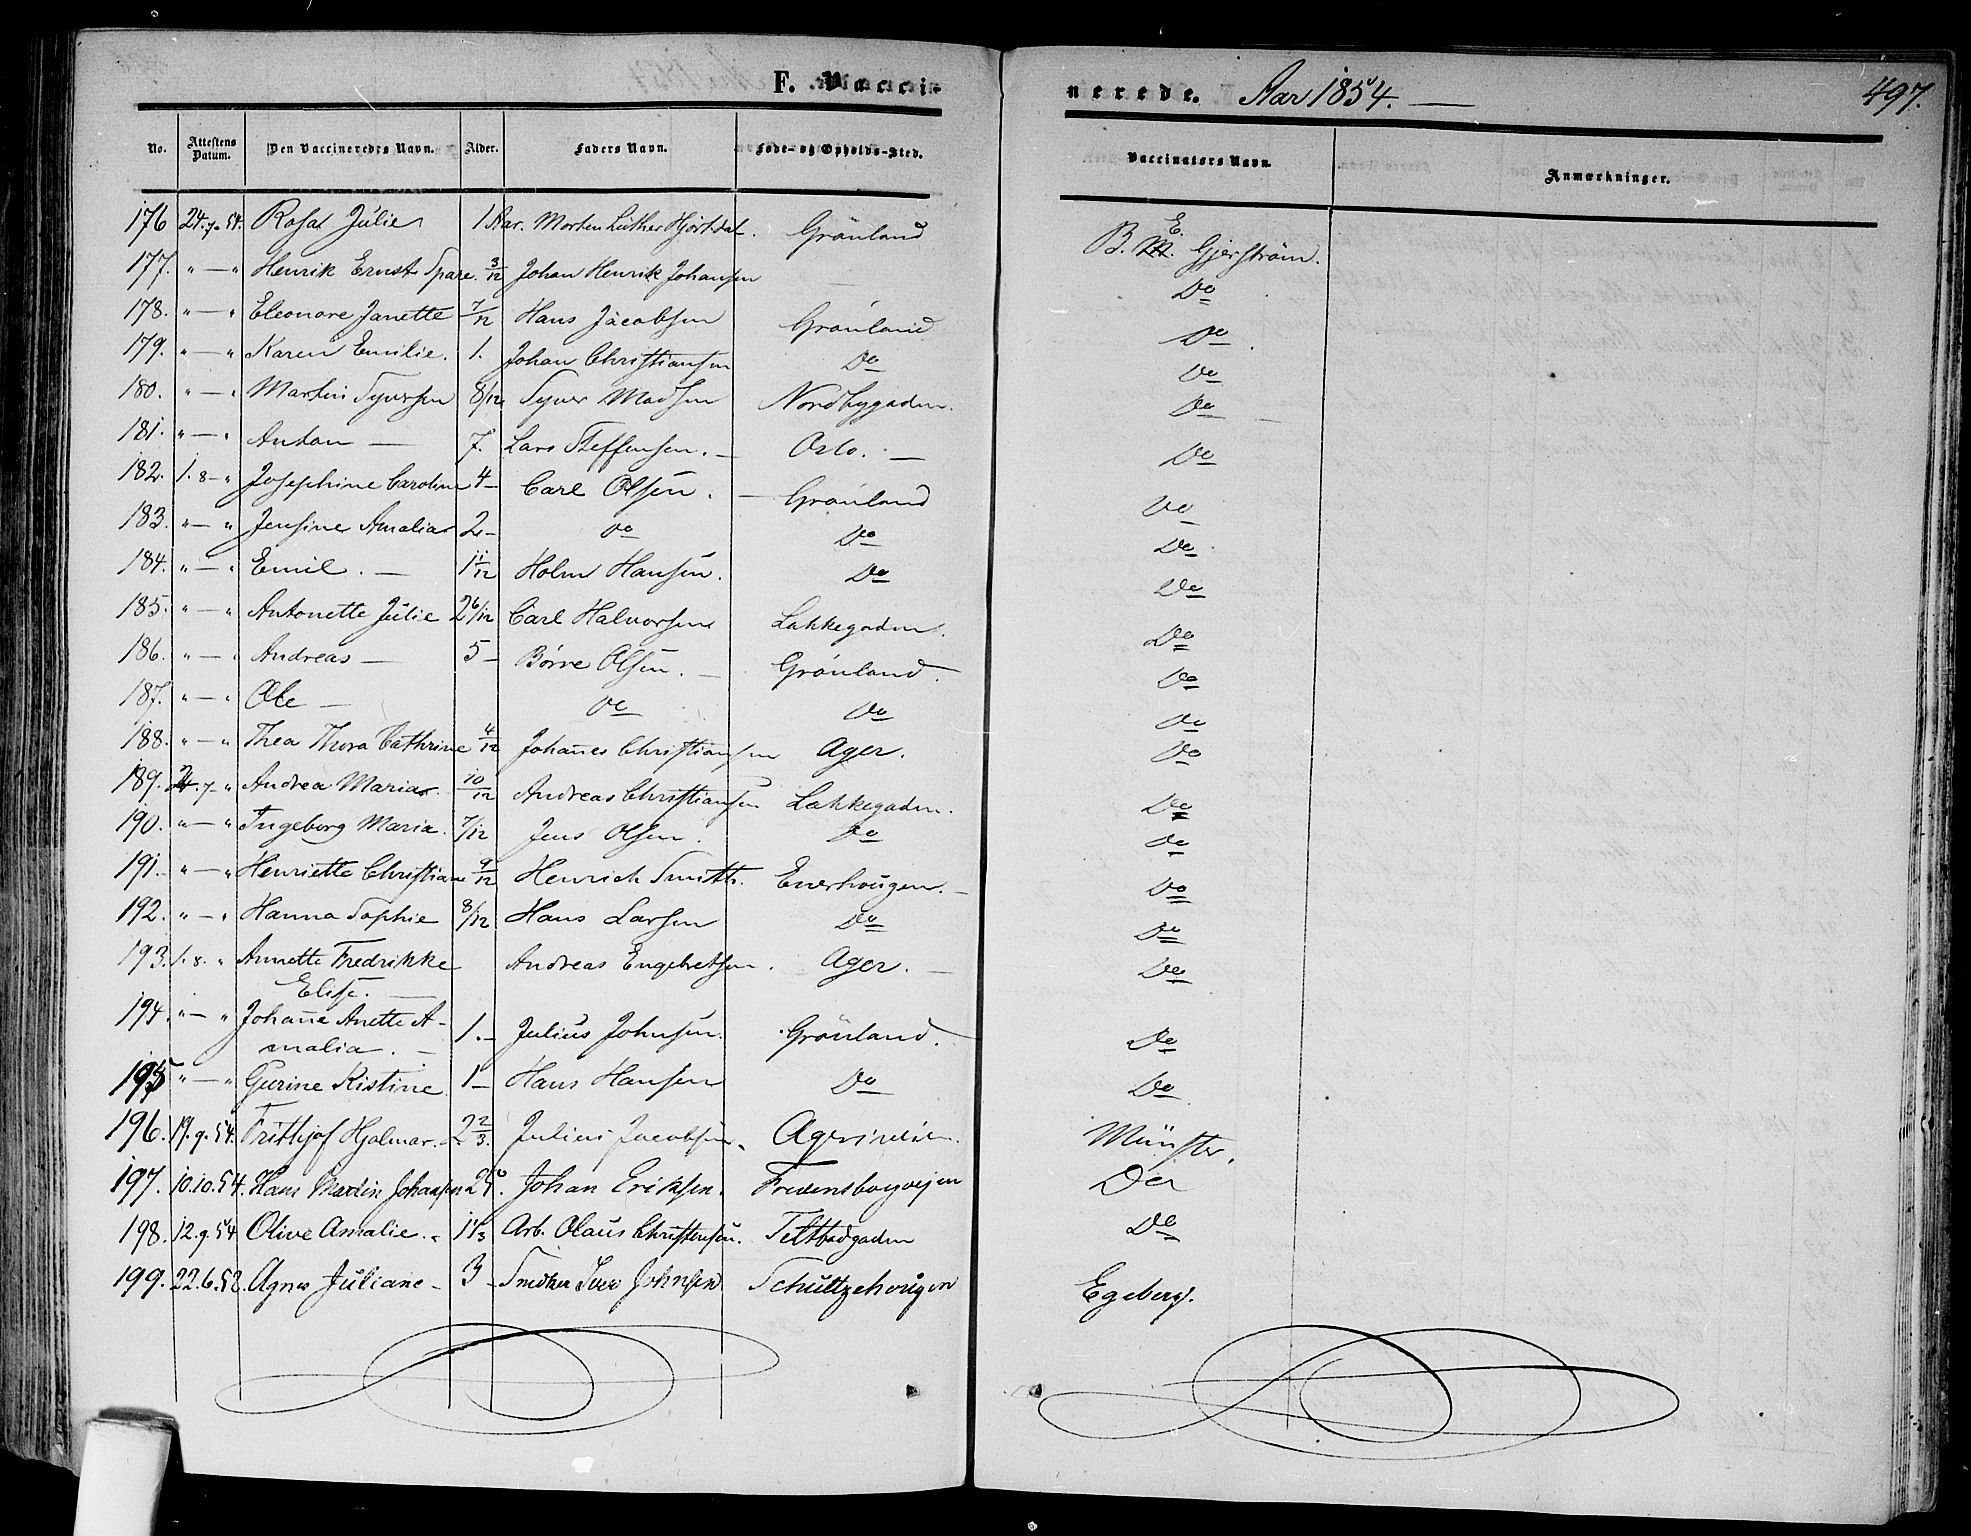 F. Vacci-
nerede. Aar 1854. — 497.
No. Attestens Datum. Den Vaccineredes Navn. Alder. Faders Navn. Føde- og Opholds-Sted. Vaccinators Navn. Anmærkninger.
176 24.7.54. Rosa Julie 1 Aar. Morten Luther Hjortdal. Grønland B. E. Gjerstrøm.
177. " — " Henrik Ernst Spare. 3/12 Johan Henrik Johansen Do
178. " — " Eleonore Janette 7/12 Hans Jacobsen Grønland Do
179. " — " Karen Emilie. 1. Johan Christiansen Do Do
180. " — " Martin Syversen 8/12 Syver Madsen Nordbygaden. Do
181. " — " Anton — 7. Lars Steffensen. — Oslo. — Do
182. 1. 8 - " Josephine Caroline 4 — Carl Olsen. — Grønland Do
183. " — " Jensine Amalia 2 - Do Do Do
184. " — " Emil. — 1 11/12 Holm Hansen. Do Do
185. " — " Antonette Julie 2 6/12 Carl Halvorsen Lakkegaden. Do
186. " — " Andreas — 5 — Børre Olsen. — Grønland. Do
187. " — " Ole — Do Do Do
188. " — " Thea Thora Cathrine 4/12 Johannes Christiansen Ager. Do
189. 24.7 " Andrea Maria. 10/12 Andreas Christiansen Lakkegaden. Do
190. " — " Ingeborg Maria. 7/12 Jens Olsen. Do Do
191. " — " Henriette Christiane 9/12 Henrich Smith. Enerhougen. — Do
192. " — " Hanna Sophie 8/12 Hans Larsen Do Do
193. 1. 8. " Annette Fredrikke Andreas Engebretsen. Ager. — Do
Elise. —
194. " — " Johanne Anette A- 1. — Julius Johnsen. Grønland. Do
malia. —
195 " — " Gurine Kistine 1 — Hans Hansen Do Do
196. 19.9.54. Frithjof Hjalmar. 2 2/3. Julius Jacobsen. Münster.
197. 10.10.54. Hans Martin Johansen Johan Eriksen. Fredensborgvejen Do
198. 12.9.54 Olive Amalie. Arb. Olaus Christensen. Teltbodgaden Do
199. 22.6.58. Agnes Juliane - 3 - Smedker Iver Johnsen Schultzehougen Egeberg.